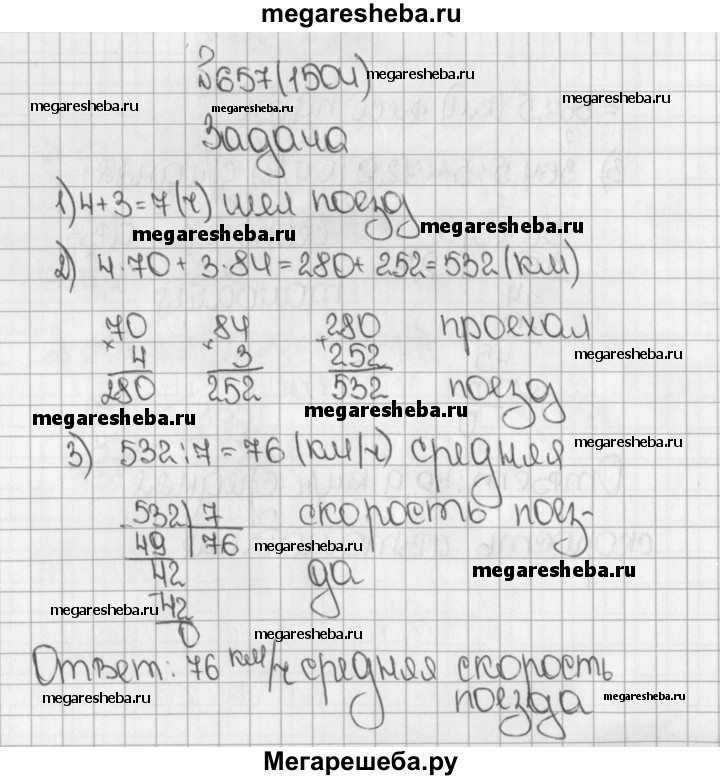 megaresheba.ru
№657(1504) megaresheba.ru
megaresheba.ru megaresheba.ru megaresheba.ru
Задача
1) 4+3=7(ч) шел поезд
megaresheba.ru megaresheba.ru
2) 4·70+3·84=280+252=532(км)
70 84 280 проехал
× 4 × 3 + 252 megaresheba.ru
280 252 532 поезд
megaresheba.ru megaresheba.ru
3) 532:7=76 (км/ч) средняя
megaresheba.ru
532 7 скорость поез-
49 76 megaresheba.ru
42 да megaresheba.ru
megaresheba.ru 42
0 megaresheba.ru
Ответ: 76 км/ч средняя скорость
megaresheba.ru megaresheba.ru megaresheba.ru
поезда
Мегарешеба.ру